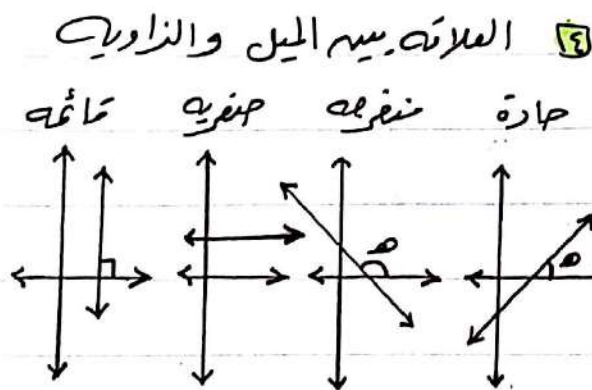 ٤ العلاقه بين الميل والزاويه
حادة منفرجه صفريه قائمه
ه ه